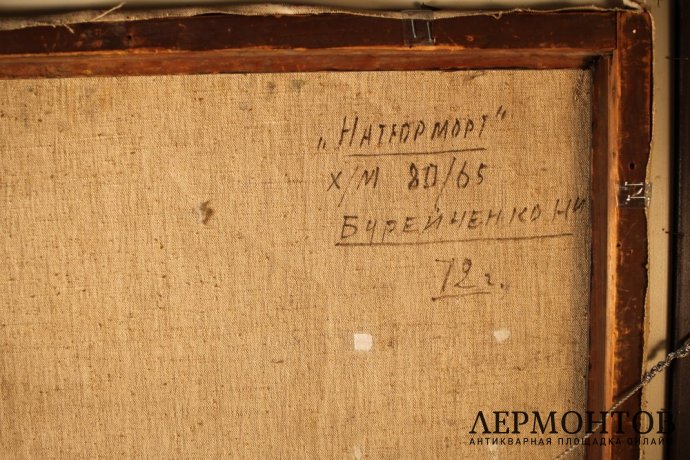 „Натюрморт"
х/м 80/65
Бурейченко Н И
72 г.
ЛЕРМОНТОВ
АНТИКВАРНАЯ ПЛОЩАДКА ОНЛАЙН